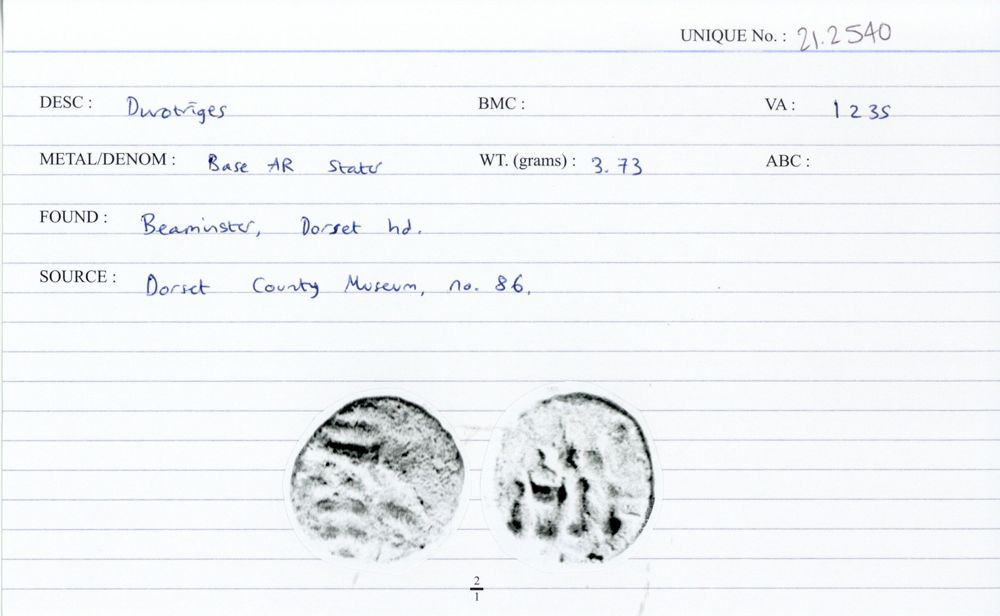 UNIQUE No. : 21.2540
DESC : Durotriges BMC : VA : 1235
METAL/DENOM : Base AR Stater WT. (grams) : 3.73 ABC :
FOUND : Beaminster, Dorset hd.
SOURCE : Dorset County Museum, no. 86.
2
1